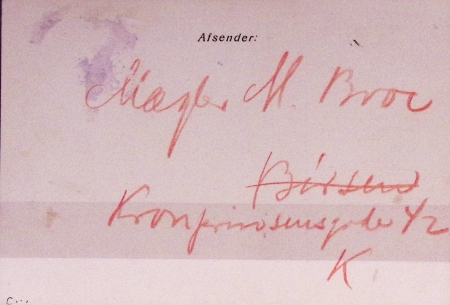 Afsender:
Mægler M. Broe
Börsen
Kronprinsensgade 4/2
K